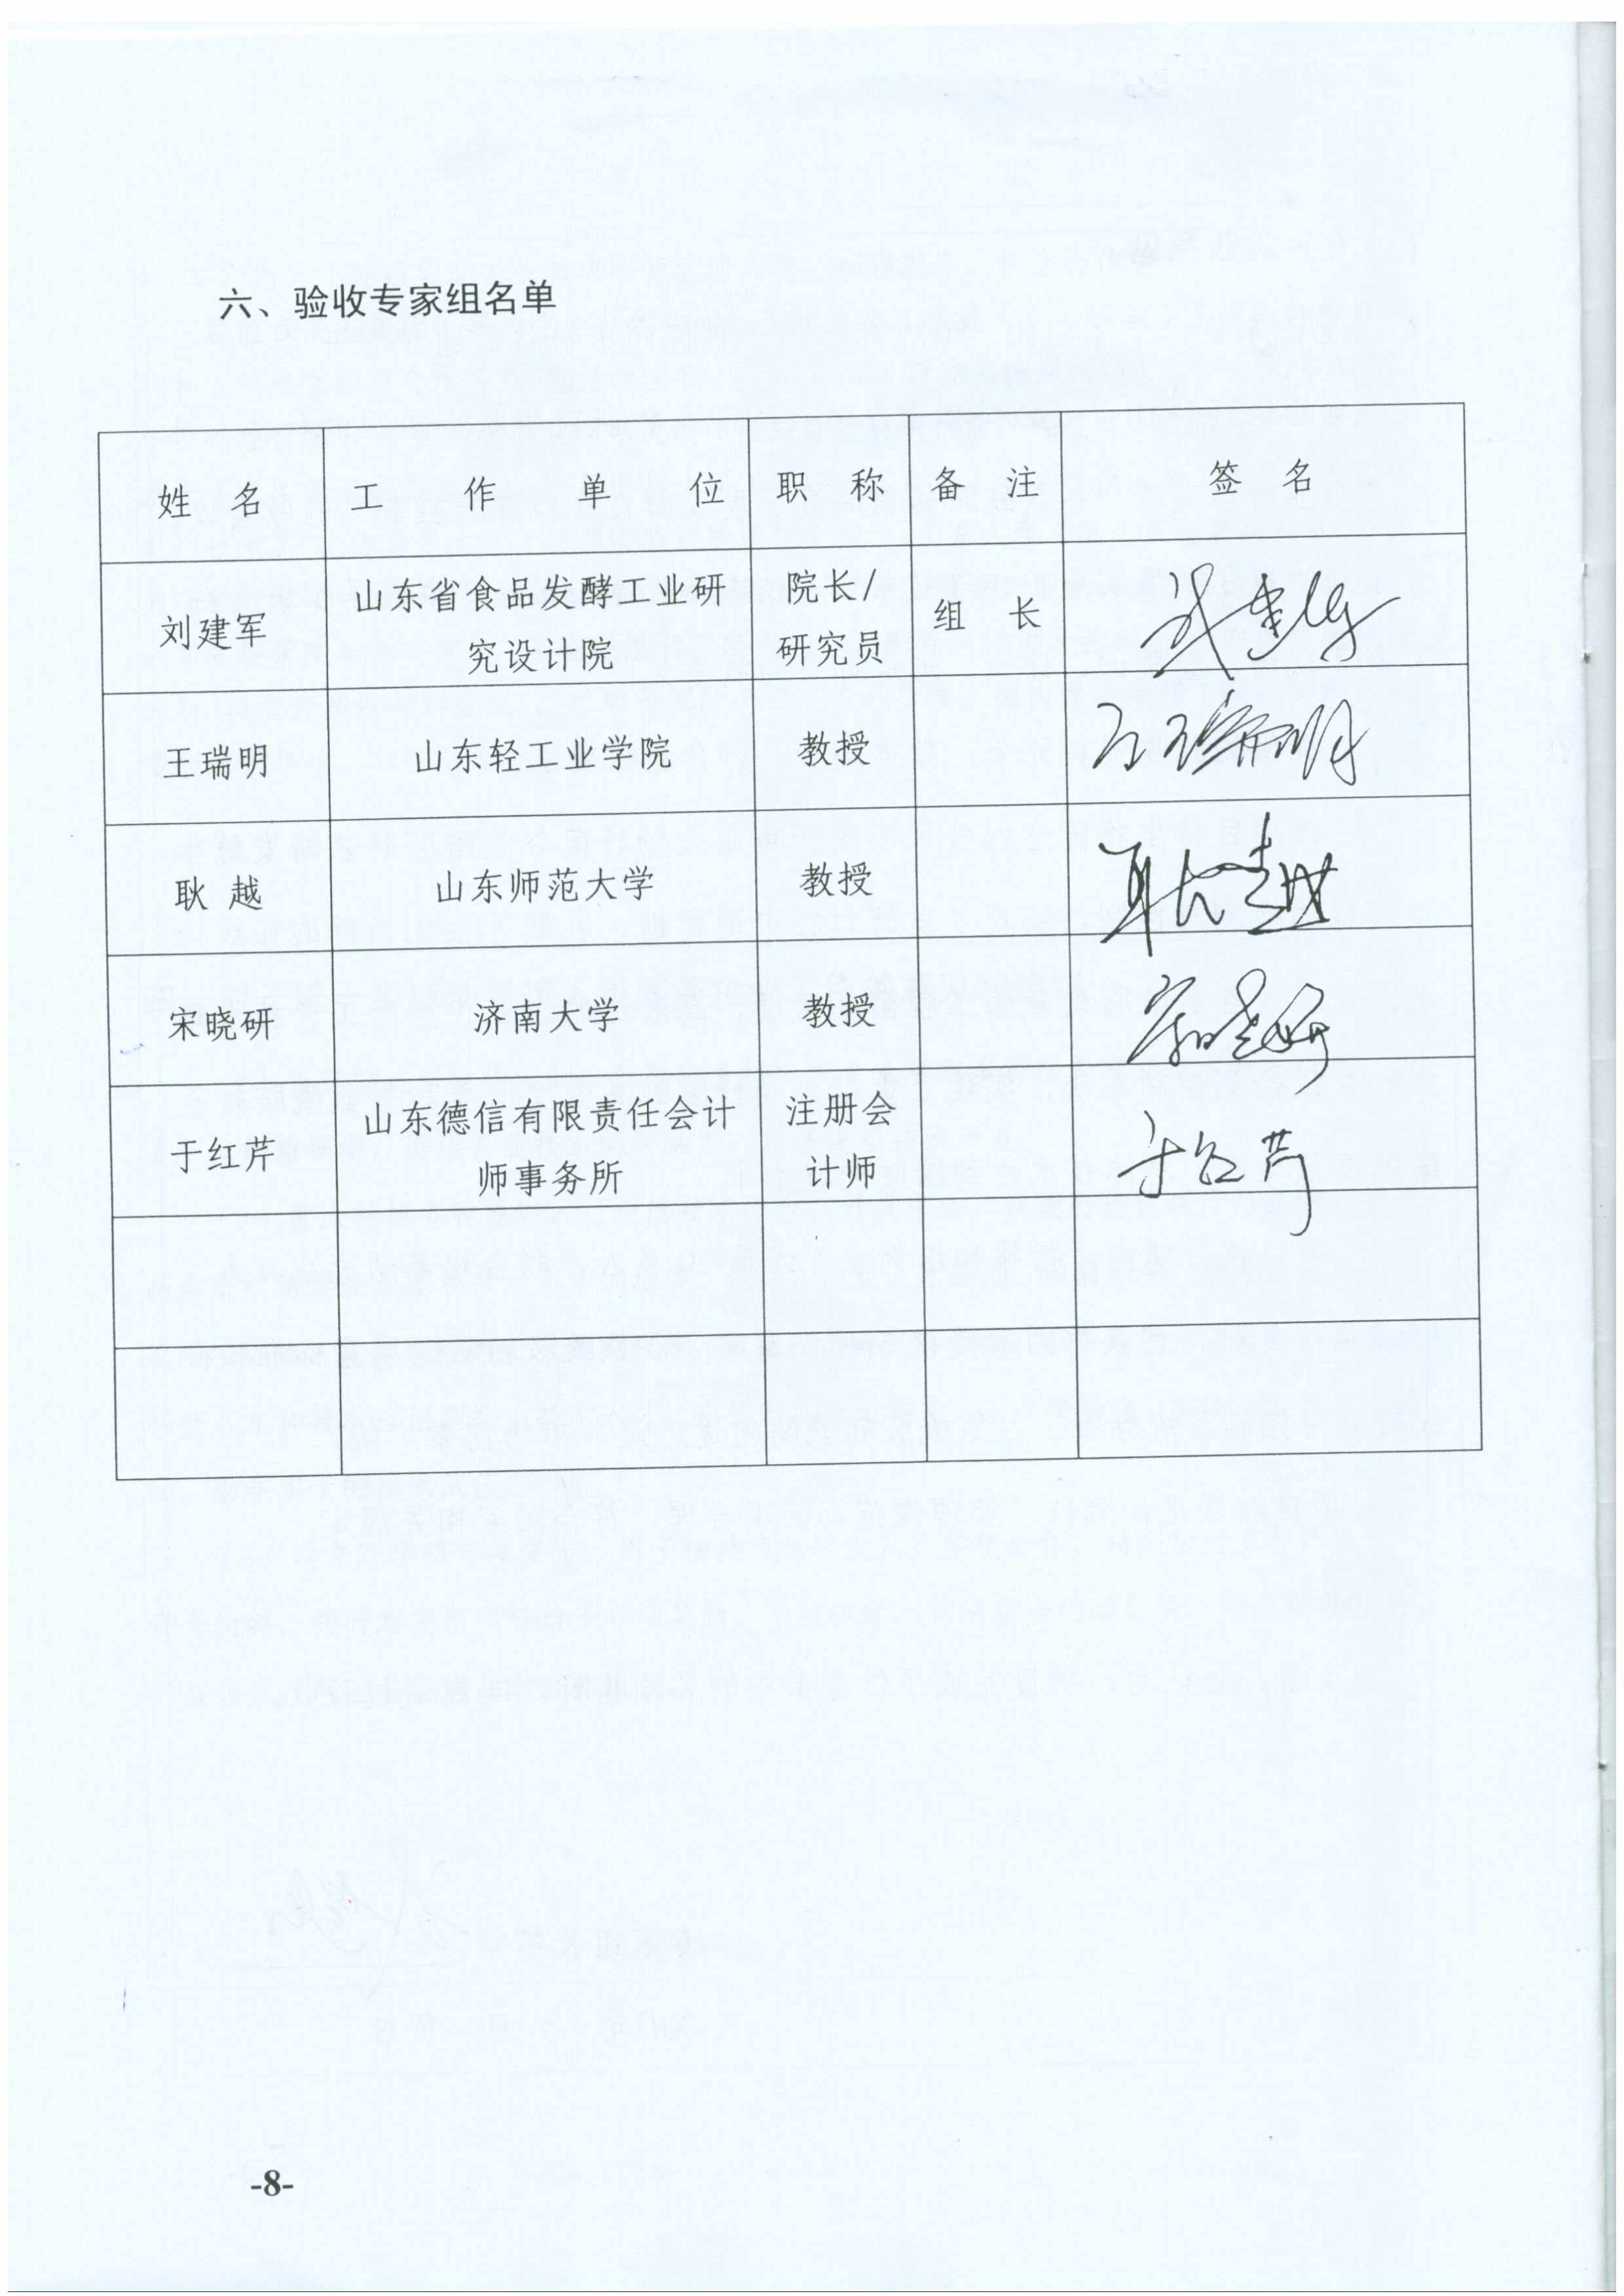 六、验收专家组名单
姓 名 工 作 单 位 职 称 备 注 签 名
刘建军 山东省食品发酵工业研 院长/ 组 长
究设计院 研究员
王瑞明 山东轻工业学院 教授 王瑞明
耿 越 山东师范大学 教授 耿越
宋晓研 济南大学 教授
于红芹 山东德信有限责任会计 注册会 于红芹
师事务所 计师
-8-